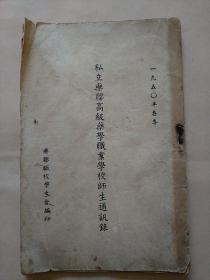 一九五〇年春季
私立高級藥學職業學校師生通訊錄
職校學生會編印